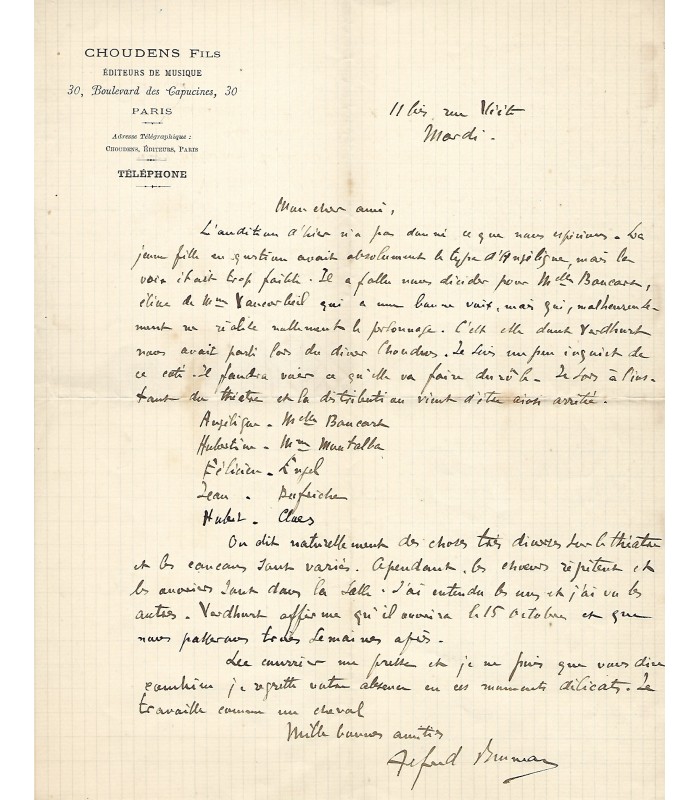 CHOUDENS FILS
ÉDITEURS DE MUSIQUE
30, Boulevard des Capucines, 30
PARIS
Adresse Télégraphique :
CHOUDENS, ÉDITEURS, PARIS
TÉLÉPHONE
11 bis rue Viète
Mardi -
Mon cher ami,
L'audition d'hier n'a pas donné ce que nous espérions. La
jeune fille en question avait absolument le type d'Angélique, mais la
voix était trop faible. Il a fallu nous décider pour Mlle Boucart,
élève de Mme Vaucorbeil qui a une bonne voix, mais qui, malheureuse-
ment ne réalise nullement le personnage. C'est elle dont Verdhurt
nous avait parlé lors du dîner Choudens. Je suis un peu inquiet de
ce côté. Il faudra voir ce qu'elle va faire du rôle. Je sors à l'ins-
tant du théâtre et la distribution vient d'être ainsi arrêtée.
Angélique - Mlle Boucart
Hubertine - Mme Montalba
Félicien - Engel
Jean - Dufriche
Hubert - Claes
On dit naturellement des choses très diverses sur le théâtre
et les cancans sont variés. Cependant, les choeurs répètent et
les ouvriers sont dans la salle. J'ai entendu les uns et j'ai vu les
autres. Verdhurt affirme qu'il ouvrira le 15 octobre et que
nous passerons trois semaines après.
Le courrier me presse et je ne puis que vous dire
combien je regrette votre absence en ces moments délicats. Je
travaille comme un cheval
Mille bonnes amitiés
Alfred Bruneau